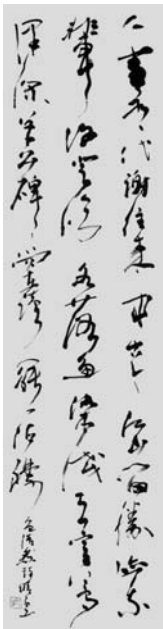 人事有代謝往來成古今江山留勝跡我
輩復登臨水落魚梁淺天寒夢
澤深羊公碑尚在讀罷淚沾襟
孟浩然詩